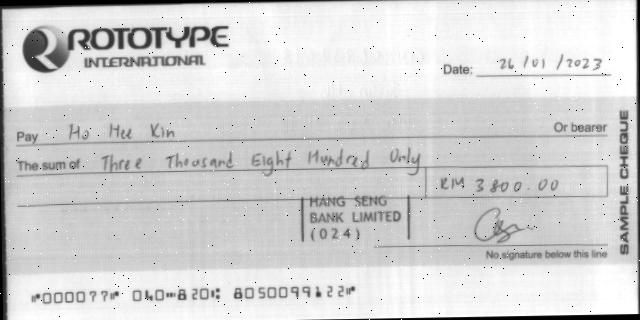 ROTOTYPE
INTERNATIONAL
Date: 26/01/2023
Pay Ho Hee Kin Or bearer
The sum of Three Thousand Eight Hundred Only
RM 3800.00
HANG SENG
BANK LIMITED
(024)
No signature below this line
SAMPLE CHEQUE
⑈000077⑈ 040⑉820⑆ 8050099122⑈